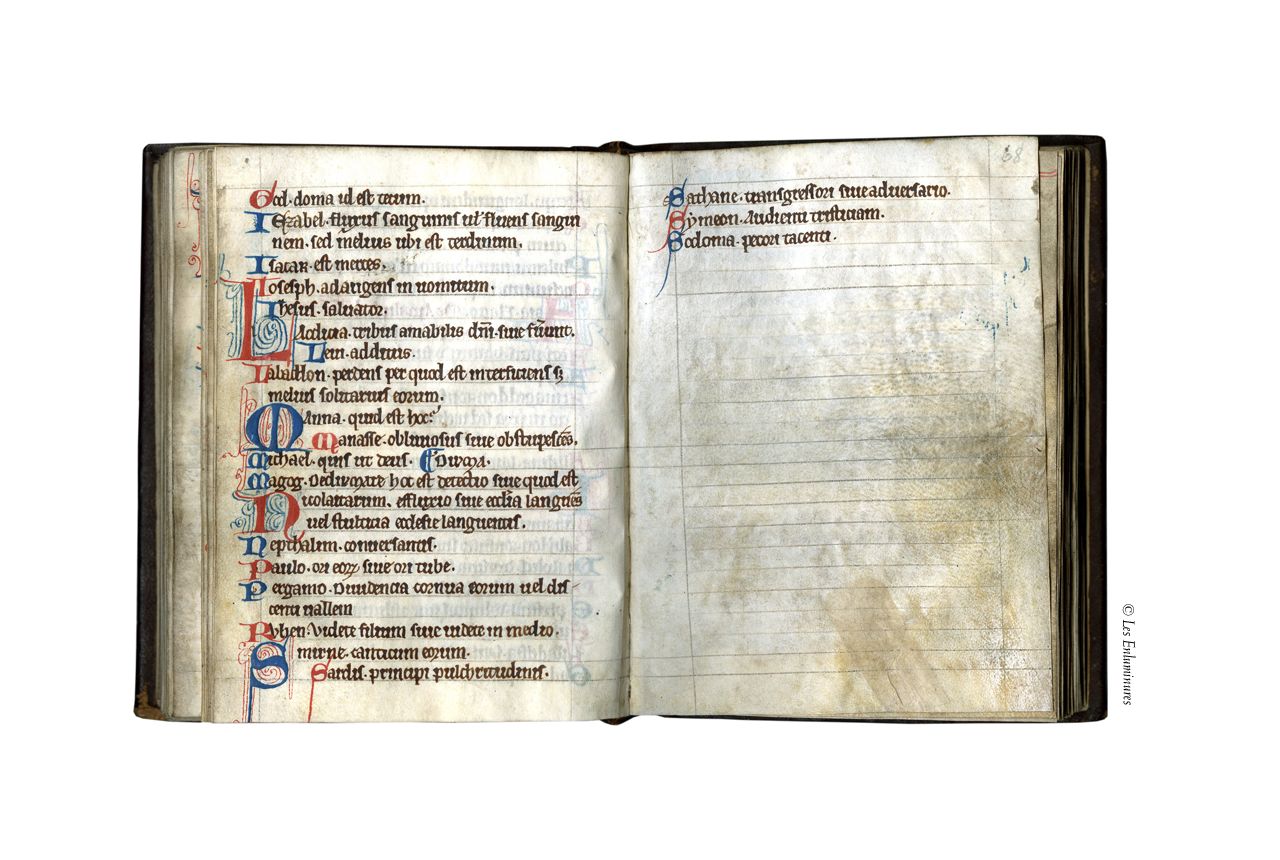 God. doma ul est tectum.
Iezabel. fluxus sanguinis ul' fluens sangui
nem. sed melius ubi est
Isacar. est merces.
Ioseph. in
Ihesus. saluator.
Laodicia. tribus amabilis siue
Leui. additus.
Labadon. perdens per quod est interficiens
melius solitarius eorum.
Manna. quid est hoc?
Manasse. obliuiosus siue
Michael. quis ut deus.
Magog. hoc est detectio siue quod est
Nicolaitarum. effusio siue
uel stulticia ecclesie languentis.
Neptalim. conuersantis.
Paulo. ori siue ori tube.
Pergamo. Diuidencia cornua eorum uel dis
centi uallem
Ruben. Videte filium siue uidete in medio.
Smirne. canticum eorum.
Sardis. principi pulchritudinis.
68
Sathane. transgressori siue aduersario.
Symeon. Audienti tristiciam.
Sodoma. pecori tacenti.
© Les Enluminures